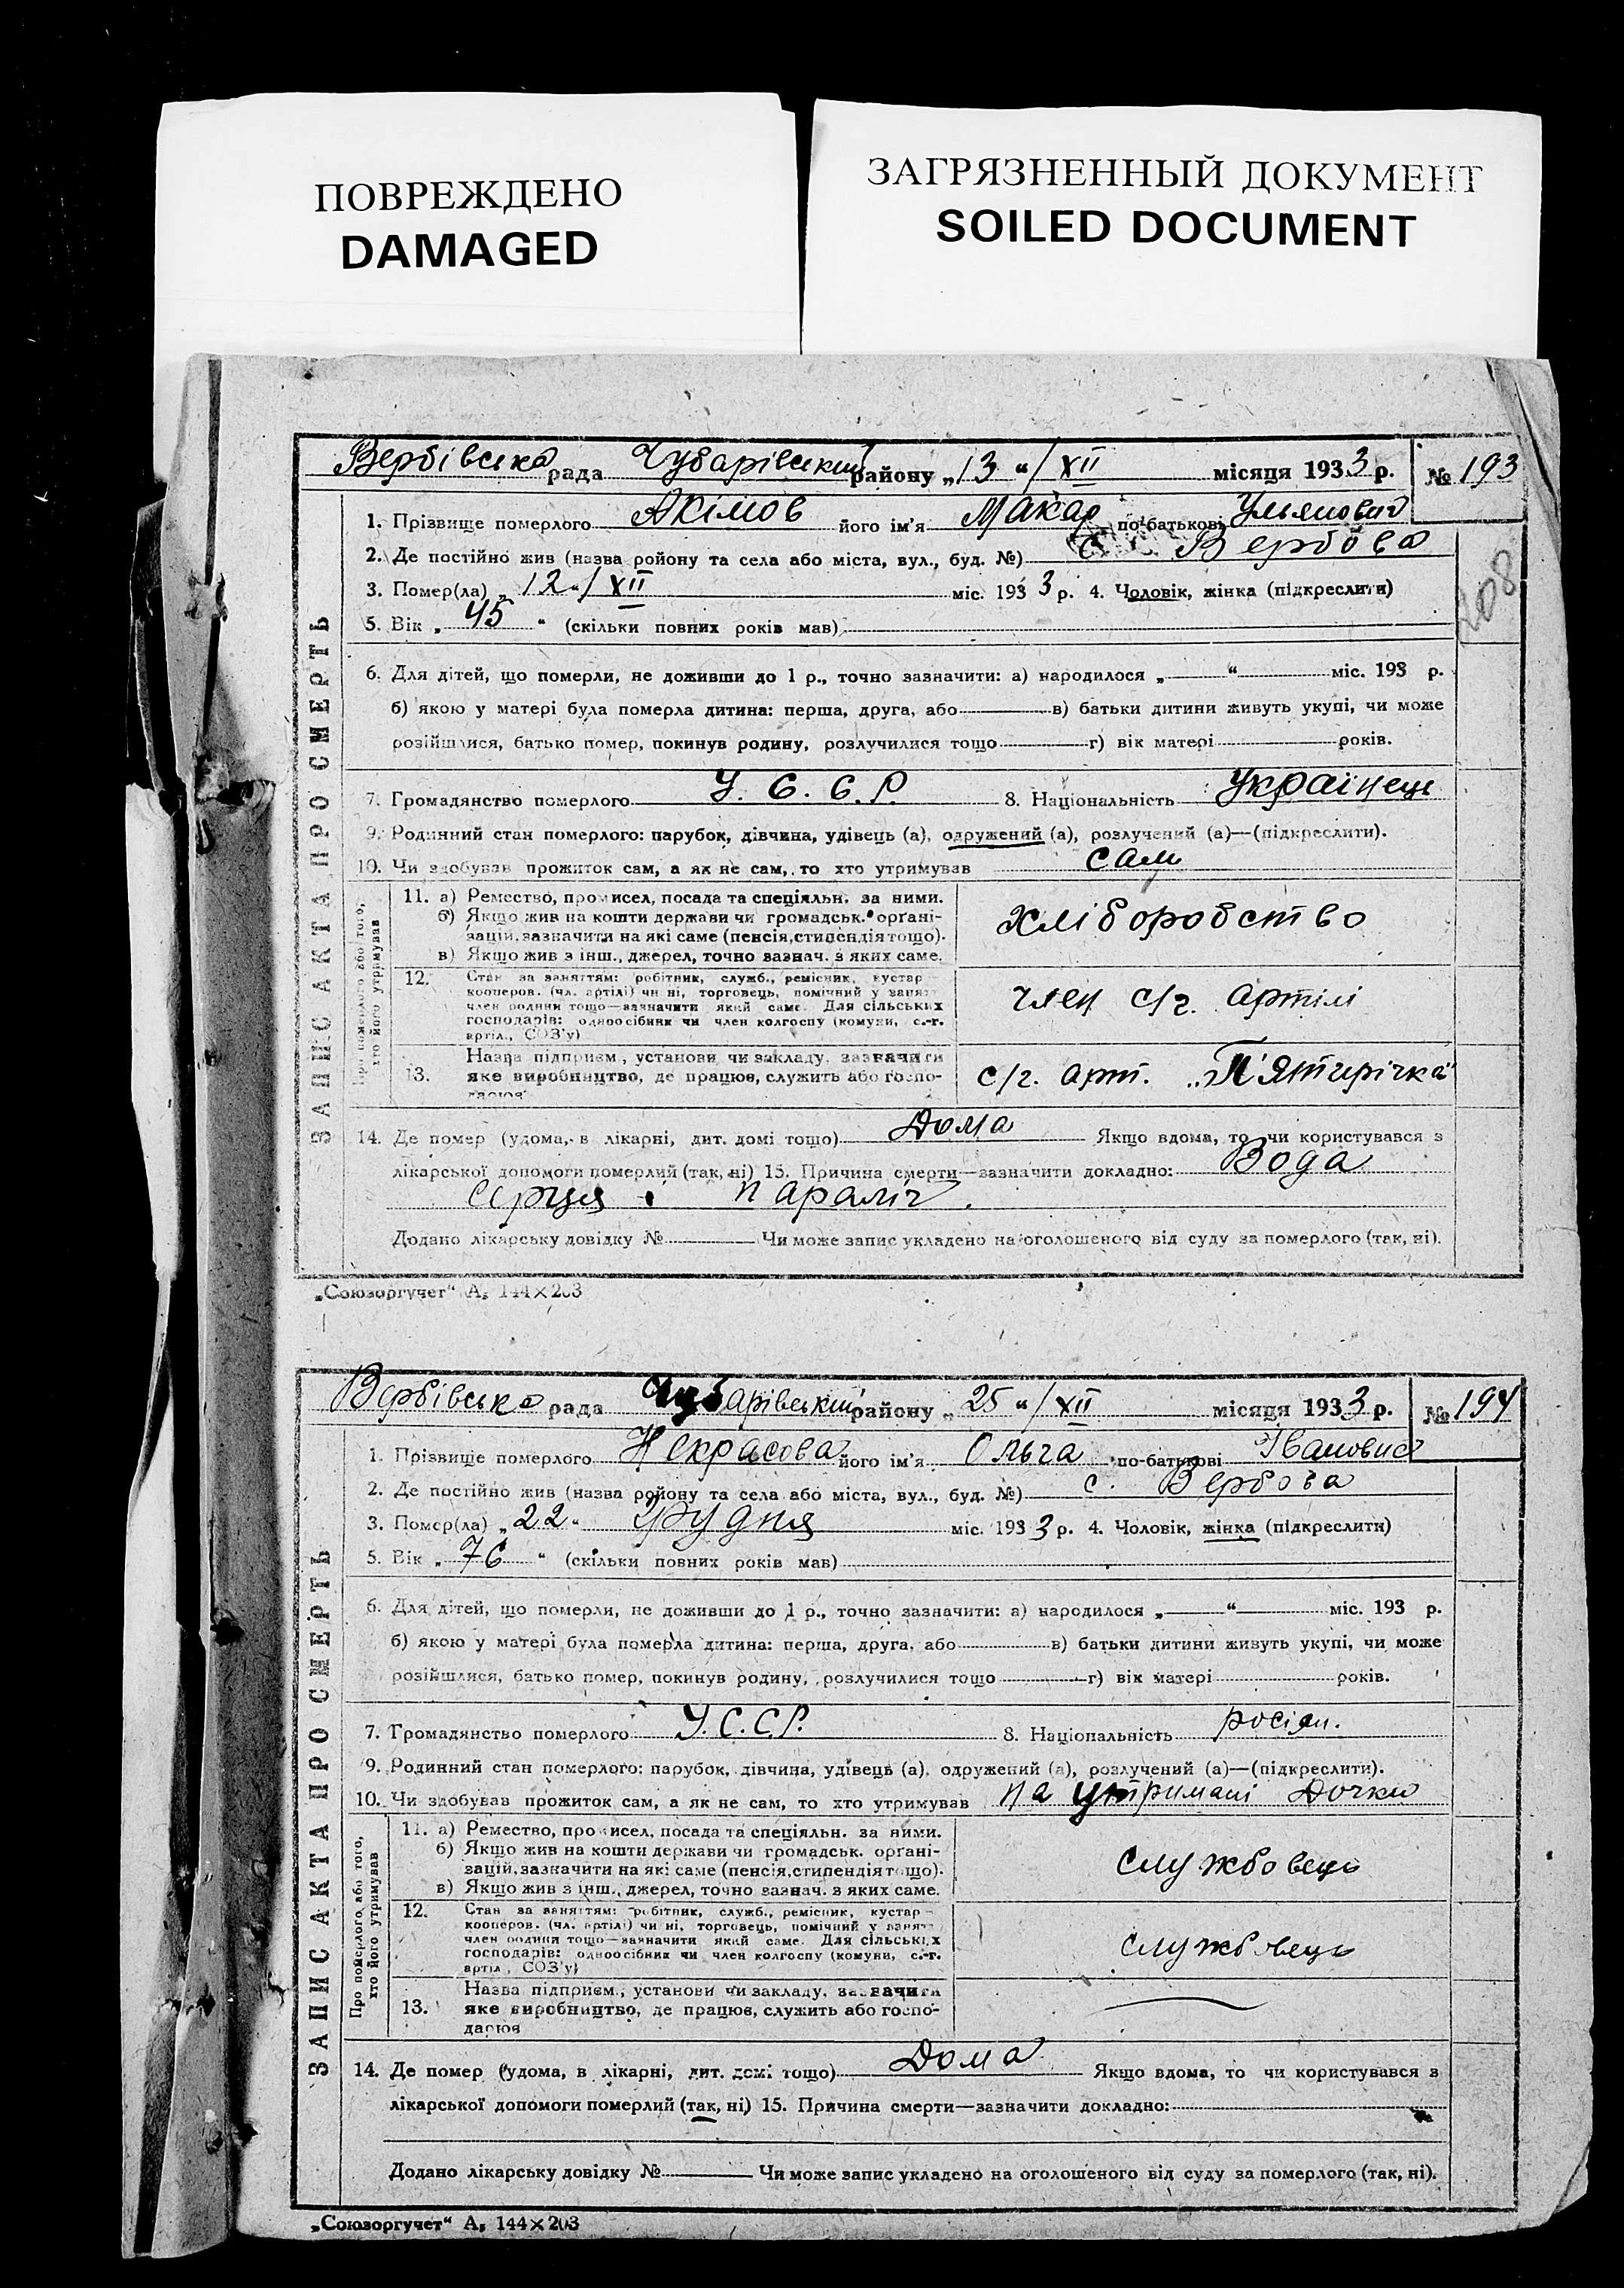 ПОВРЕЖДЕНО
DAMAGED
ЗАГРЯЗНЕННЫЙ ДОКУМЕНТ
SOILED DOCUMENT
ЗАПИС АКТА ПРО СМЕРТЬ
Вербівська рада Чубарівський району „13“/XII місяця 1933 р. № 193
1. Прізвище померлого Акімов його ім'я Макар по-батькові Ульянович
2. Де постійно жив (назва району та села або міста, вул., буд. №) с. Вербова
208
3. Помер(ла) „12“/XII міс. 1933 р. 4. Чоловік, жінка (підкреслити)
5. Вік „45“ (скільки повних років мав)
6. Для дітей, що померли, не доживши до 1 р., точно зазначити: а) народилося „ “ міс. 193 р.
б) якою у матері була померла дитина: перша, друга, або в) батьки дитини живуть укупі, чи може
розійшлися, батько помер, покинув родину, розлучилися тощо г) вік матері років.
7. Громадянство померлого У.С.С.Р. 8. Національність Українець
9. Родинний стан померлого: парубок, дівчина, удівець (а), одружений (а), розлучений (а)—(підкреслити).
10. Чи здобував прожиток сам, а як не сам, то хто утримував сам
Про померлого або того, хто його утримував
11. а) Ремество, промисел, посада та спеціяльн. за ними.
б) Якщо жив на кошти держави чи громадськ. орґані-
зацій, зазначити на які саме (пенсія, стипендія тощо).
в) Якщо жив з інш., джерел, точно зазнач. з яких саме.
хліборобство
12. Стан за заняттям: робітник, служб., ремісник, кустар
кооперов. (чл. артілі) чи ні, торговець, помічний у занят
член родини тощо—зазначити який саме. Для сільських
господарів: одноосібник чи член колгоспу (комуни, с.-г.
артіл., СОЗ'у)
член с/г. артілі
13. Назва підприєм., установи чи закладу, зазначити
яке виробництво, де працює, служить або госпо-
дарює
с/г. арт. „П'ятирічка“
14. Де помер (удома, в лікарні, дит. домі тощо) Дома Якщо вдома, то чи користувався з
лікарської допомоги померлий (так, ні) 15. Причина смерти—зазначити докладно: Вода
серця і параліч.
Додано лікарську довідку № Чи може запис укладено на оголошеного від суду за померлого (так, ні).
„Союзоргучет“ А5 144×203
ЗАПИС АКТА ПРО СМЕРТЬ
Вербівська рада Чубарівський району „25“/XII місяця 1933 р. № 194
1. Прізвище померлого Некрасова його ім'я Ольга по-батькові Івановна
2. Де постійно жив (назва району та села або міста, вул., буд. №) с. Вербова
3. Помер(ла) „22“ Грудня міс. 1933 р. 4. Чоловік, жінка (підкреслити)
5. Вік „76“ (скільки повних років мав)
6. Для дітей, що померли, не доживши до 1 р., точно зазначити: а) народилося „ “ міс. 193 р.
б) якою у матері була померла дитина: перша, друга, або в) батьки дитини живуть укупі, чи може
розійшлися, батько помер, покинув родину, розлучилися тощо г) вік матері років.
7. Громадянство померлого У.С.С.Р. 8. Національність росіян.
9. Родинний стан померлого: парубок, дівчина, удівець (а), одружений (а), розлучений (а)—(підкреслити).
10. Чи здобував прожиток сам, а як не сам, то хто утримував на утримані Дочки
Про померлого, або того, хто його утримував
11. а) Ремество, промисел, посада та спеціяльн. за ними.
б) Якщо жив на кошти держави чи громадськ. орґані-
зацій, зазначити на які саме (пенсія, стипендія тощо).
в) Якщо жив з інш., джерел, точно зазнач. з яких саме.
службовець
12. Стан за заняттям: робітник, служб., ремісник, кустар
кооперов. (чл. артілі) чи ні, торговець, помічний у занят
член родини тощо—зазначити який саме. Для сільських
господарів: одноосібник чи член колгоспу (комуни, с.-г.
артіл., СОЗ'у)
службовець
13. Назва підприєм., установи чи закладу, зазначити
яке виробництво, де працює, служить або госпо-
дарює
14. Де помер (удома, в лікарні, дит. домі тощо) Дома Якщо вдома, то чи користувався з
лікарської допомоги померлий (так, ні) 15. Причина смерти—зазначити докладно:
Додано лікарську довідку № Чи може запис укладено на оголошеного від суду за померлого (так, ні).
„Союзоргучет“ А5 144×203